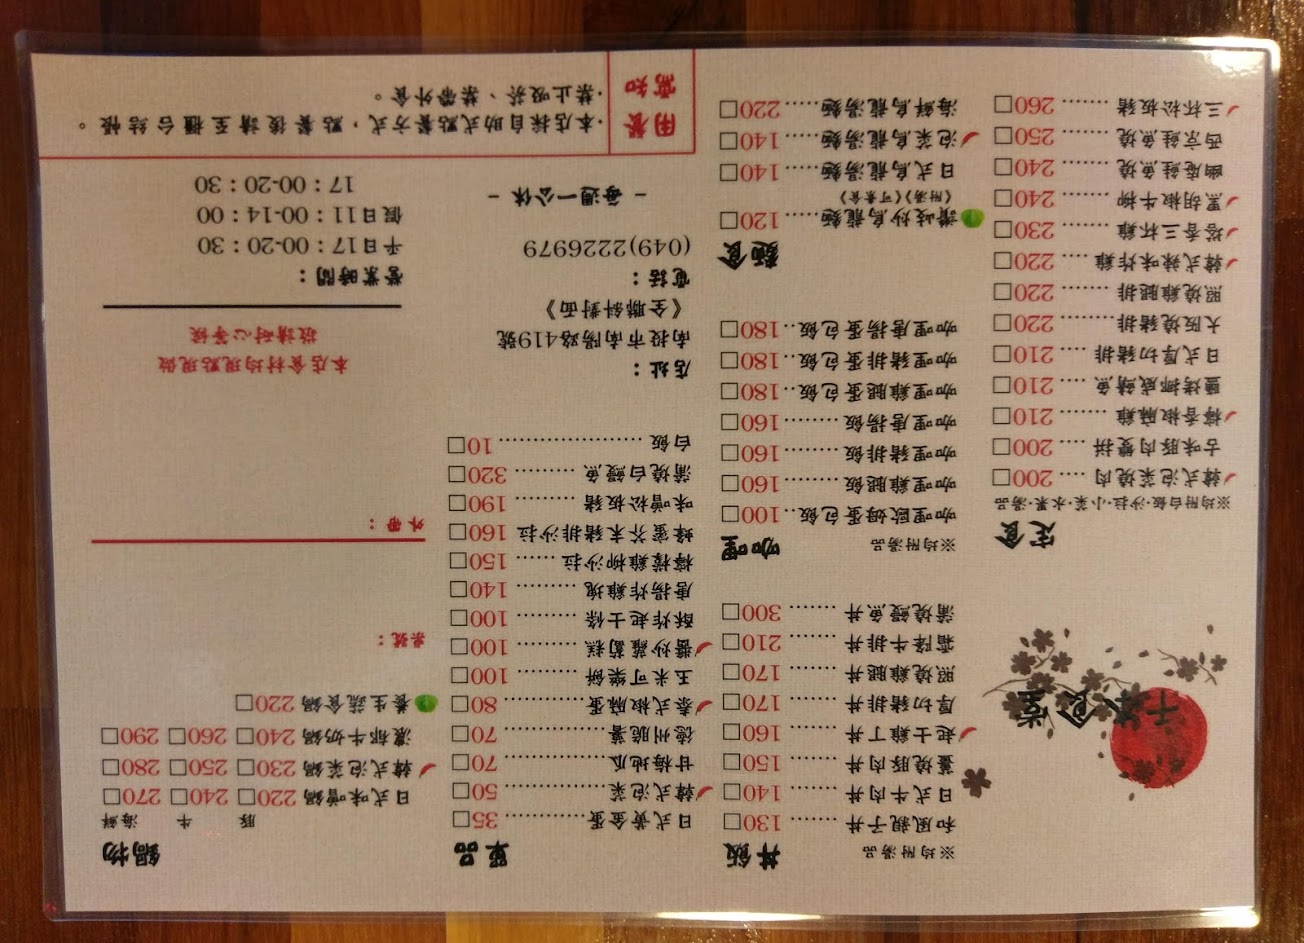 食堂
定食
※均附白飯·沙拉·小菜·水果·湯品
韓式泡菜燒肉 ···· 200□
古味豚肉雙拼 ···· 200□
檸香椒麻雞 ······· 210□
鹽烤挪威鯖魚 ···· 210□
日式厚切豬排 ···· 210□
大阪燒豬排 ······· 220□
照燒雞腿排 ······· 220□
韓式辣味炸雞 ···· 220□
塔香三杯雞 ······· 230□
黑胡椒牛柳 ······· 240□
幽庵鮭魚燒 ······· 240□
西京鮭魚燒 ······· 250□
三杯松板豬 ······· 260□
丼飯 ※均附湯品
和風親子丼 ······· 130□
日式牛肉丼 ······· 140□
薑燒豚肉丼 ······· 150□
起士雞丁丼 ······· 160□
厚切豬排丼 ······· 170□
照燒雞腿丼 ······· 170□
霜降牛排丼 ······· 210□
蒲燒鰻魚丼 ······· 300□
咖哩 ※均附湯品
咖哩歐姆蛋包飯 ·· 100□
咖哩雞腿飯 ······ 160□
咖哩豬排飯 ······ 160□
咖哩唐揚飯 ······ 160□
咖哩雞腿蛋包飯 ·· 180□
咖哩豬排蛋包飯 ·· 180□
咖哩唐揚蛋包飯 ·· 180□
麵食
讚岐炒烏龍麵 ····· 120□
《附湯》《可素食》
日式烏龍湯麵 ······ 140□
泡菜烏龍湯麵 ······ 140□
海鮮烏龍湯麵 ······ 220□
單品
日式黃金蛋 ············ 35□
韓式泡菜 ·············· 50□
甘梅地瓜 ·············· 70□
德州脆薯 ·············· 70□
泰式椒麻蛋 ············ 80□
玉米可樂餅 ·········· 100□
醬炒蘿蔔糕 ·········· 100□
酥炸起士條 ·········· 100□
唐揚炸雞塊 ·········· 140□
檸檬雞柳沙拉 ······· 150□
蜂蜜芥末豬排沙拉 160□
味噌松板豬 ·········· 190□
蒲燒白鰻魚 ·········· 320□
白飯 ····················· 10□
店址：
南投市南陽路419號
《全聯斜對面》
電話：
(049)2226979
- 每週一公休 -
鍋物
豚 牛 海鮮
日式味噌鍋 220□ 240□ 270□
韓式泡菜鍋 230□ 250□ 280□
濃郁牛奶鍋 240□ 260□ 290□
養生蔬食鍋 220□
桌號：
外帶：
本店食材均現點現做
敬請耐心等候
營業時間：
平日17：00-20：30
假日11：00-14：00
17：00-20：30
用餐
需知
·本店採自助式點餐方式，點餐後請至櫃台結帳。
·禁止吸菸、禁帶外食。